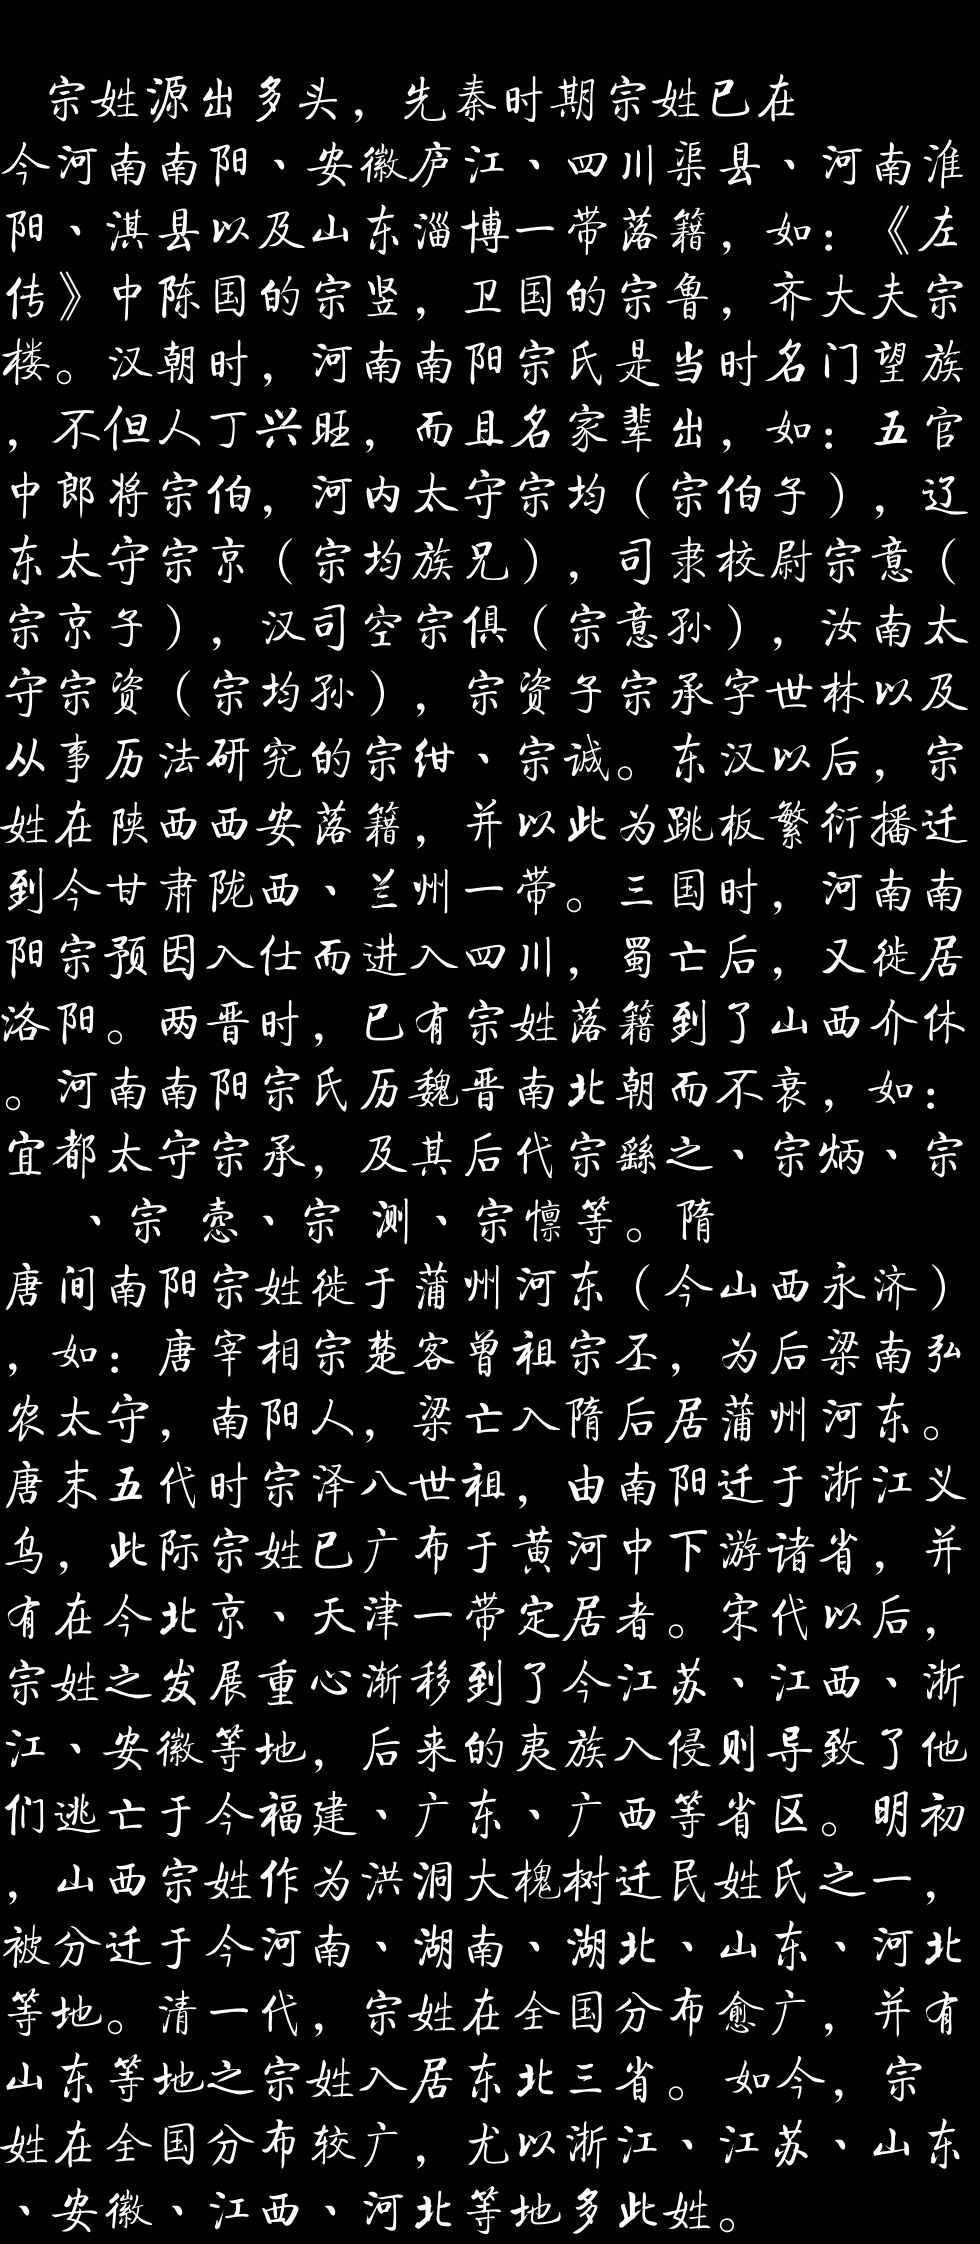 宗姓源出多头，先秦时期宗姓已在
今河南南阳、安徽庐江、四川渠县、河南淮
阳、淇县以及山东淄博一带落籍，如：《左
传》中陈国的宗竖，卫国的宗鲁，齐大夫宗
楼。汉朝时，河南南阳宗氏是当时名门望族
，不但人丁兴旺，而且名家辈出，如：五官
中郎将宗伯，河内太守宗均（宗伯子），辽
东太守宗京（宗均族兄），司隶校尉宗意（
宗京子），汉司空宗俱（宗意孙），汝南太
守宗资（宗均孙），宗资子宗承字世林以及
从事历法研究的宗绀、宗诚。东汉以后，宗
姓在陕西西安落籍，并以此为跳板繁衍播迁
到今甘肃陇西、兰州一带。三国时，河南南
阳宗预因入仕而进入四川，蜀亡后，又徙居
洛阳。两晋时，已有宗姓落籍到了山西介休
。河南南阳宗氏历魏晋南北朝而不衰，如：
宜都太守宗承，及其后代宗繇之、宗炳、宗
、宗悫、宗测、宗懔等。隋
唐间南阳宗姓徙于蒲州河东（今山西永济）
，如：唐宰相宗楚客曾祖宗丕，为后梁南弘
农太守，南阳人，梁亡入隋后居蒲州河东。
唐末五代时宗泽八世祖，由南阳迁于浙江义
乌，此际宗姓已广布于黄河中下游诸省，并
有在今北京、天津一带定居者。宋代以后，
宗姓之发展重心渐移到了今江苏、江西、浙
江、安徽等地，后来的夷族入侵则导致了他
们逃亡于今福建、广东、广西等省区。明初
，山西宗姓作为洪洞大槐树迁民姓氏之一，
被分迁于今河南、湖南、湖北、山东、河北
等地。清一代，宗姓在全国分布愈广，并有
山东等地之宗姓入居东北三省。如今，宗
姓在全国分布较广，尤以浙江、江苏、山东
、安徽、江西、河北等地多此姓。